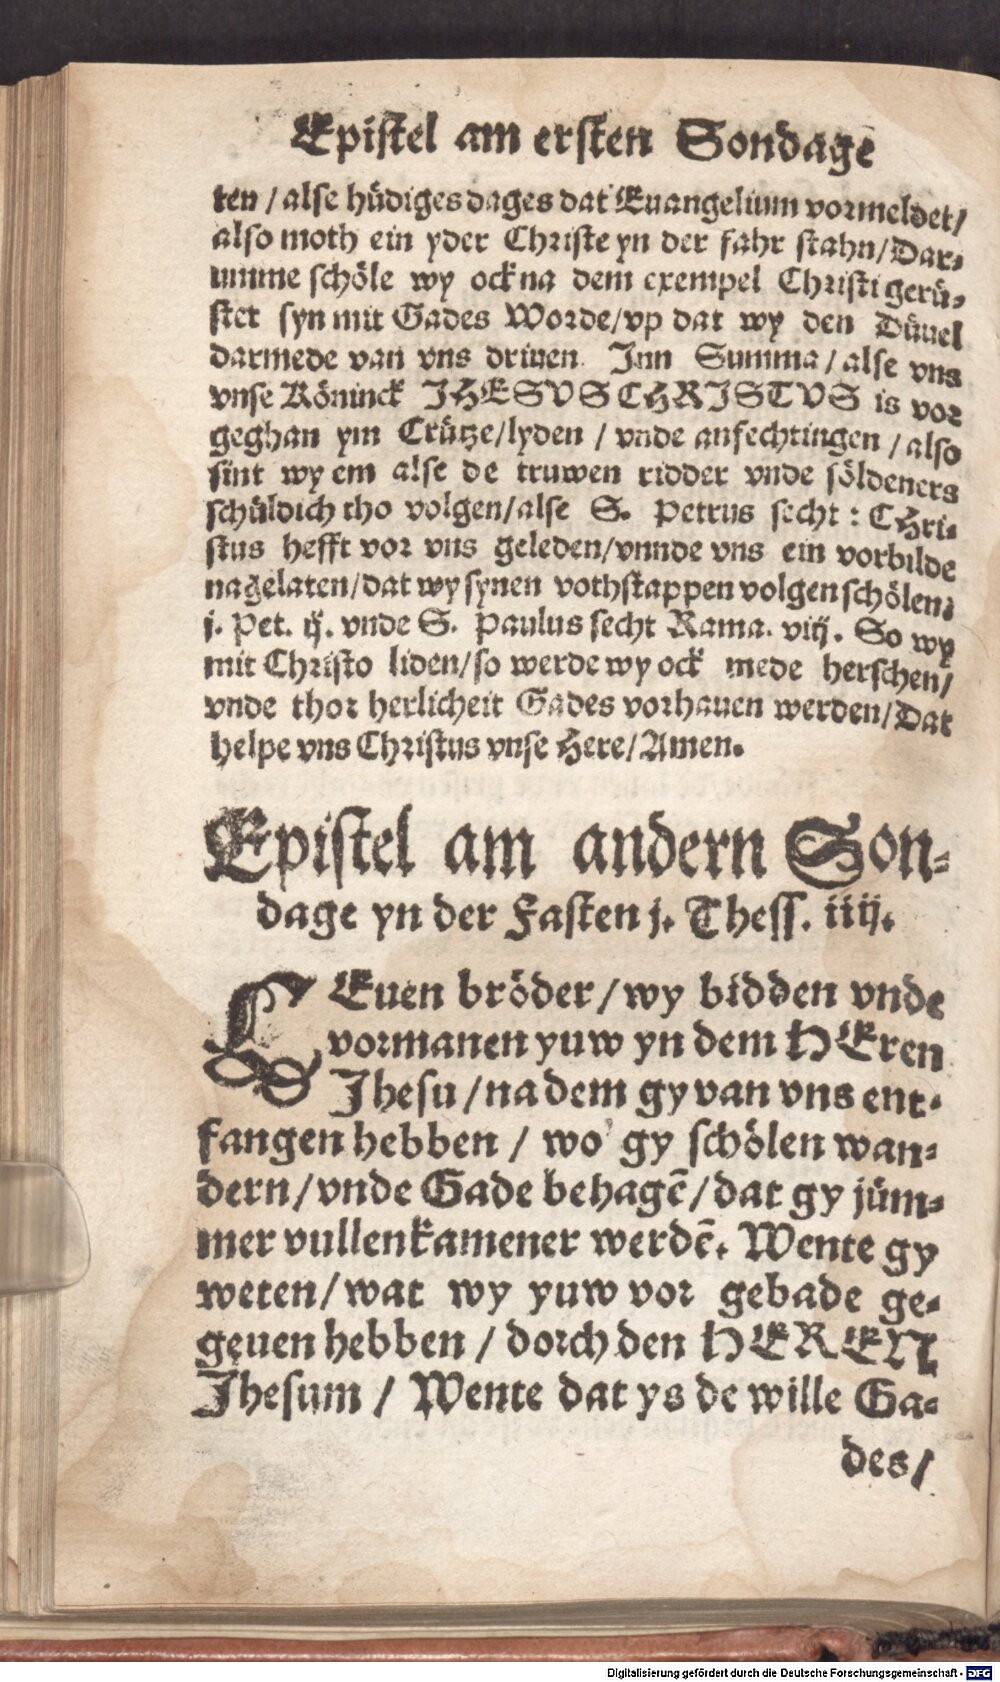 Epistel am ersten Sondage
ten / alse hüdiges dages dat Euangelium vormeldet /
also moth ein yder Christe yn der fahr stahn / Dar-
umme schöle wy ock na dem exempel Christi gerü-
stet syn mit Gades Worde / vp dat wy den Düuel
darmede van vns driuen. Inn Summa / alse vns
vnse Köninck JHESVS CHRISTVS is vor
geghan ym Crütze / lyden / vnde anfechtingen / also
sint wy em alse de truwen ridder vnde söldeners
schüldich tho volgen / alse S. Petrus secht : CHri-
stus hefft vor vns geleden / vnnde vns ein vorbilde
nagelaten / dat wy synen vothstappen volgen schölen.
j. Pet. ij. vnde S. Paulus secht Roma. viij. So wy
mit Christo liden / so werde wy ock mede herschen /
vnde thor herlicheit Gades vorhauen werden / Dat
helpe vns Christus vnse Here / Amen.
Epistel am andern Son-
dage yn der Fasten j. Thess. iiij.
LEuen bröder / wy bidden vnde
vormanen yuw yn dem HEren
Jhesu / na dem gy van vns ent-
fangen hebben / wo gy schölen wan-
dern / vnde Gade behagē / dat gy jüm-
mer vullenkamener werdē. Wente gy
weten / wat wy yuw vor gebade ge-
geuen hebben / dorch den HEREN
Jhesum / Wente dat ys de wille Ga-
des /
Digitalisierung gefördert durch die Deutsche Forschungsgemeinschaft - DFG